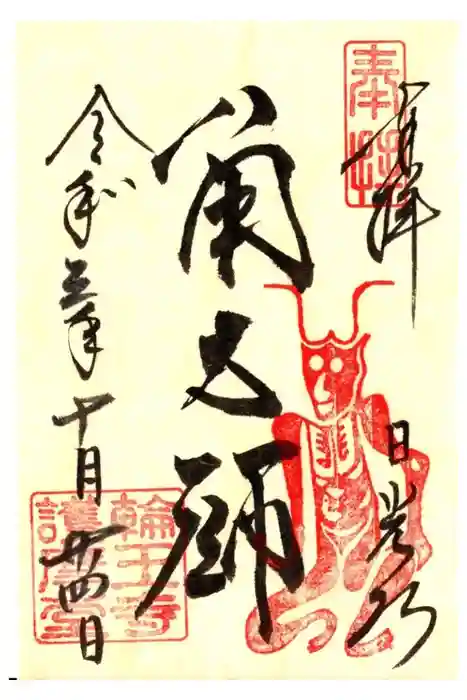 奉拝
奉拝
日光山
角大師
令和三年十月廿四日
輪王寺
護摩堂